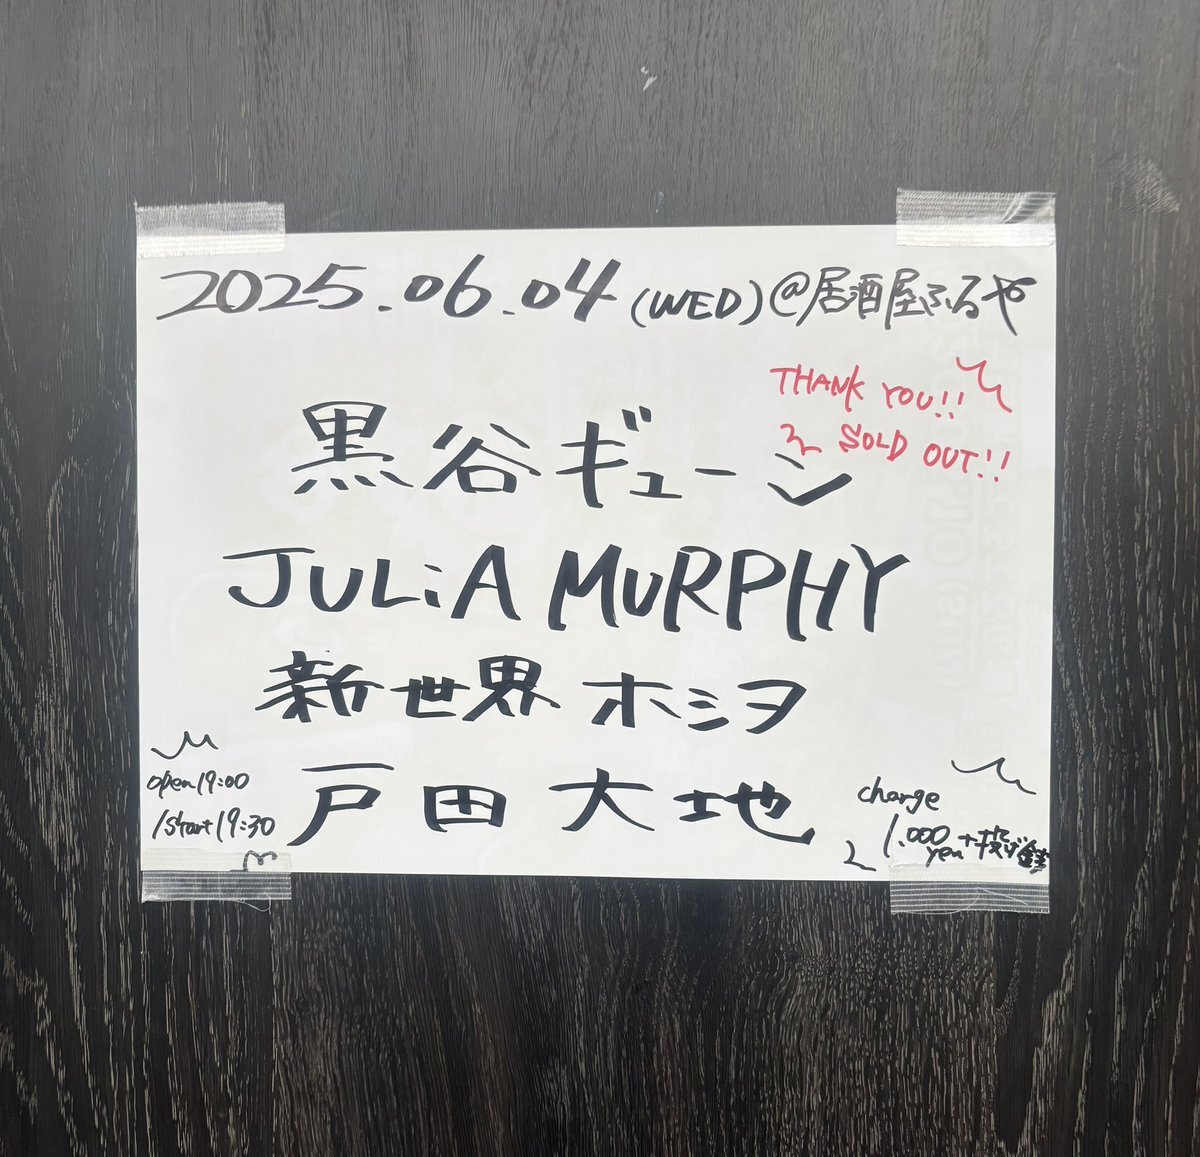 2025.06.04 (WED) @居酒屋ふるや
THANK YOU!!
SOLD OUT!!
黒谷ギューン
JULiA MURPHY
新世界ホシヲ
戸田大地
open19:00
/start19:30
charge
1.000yen+投げ銭